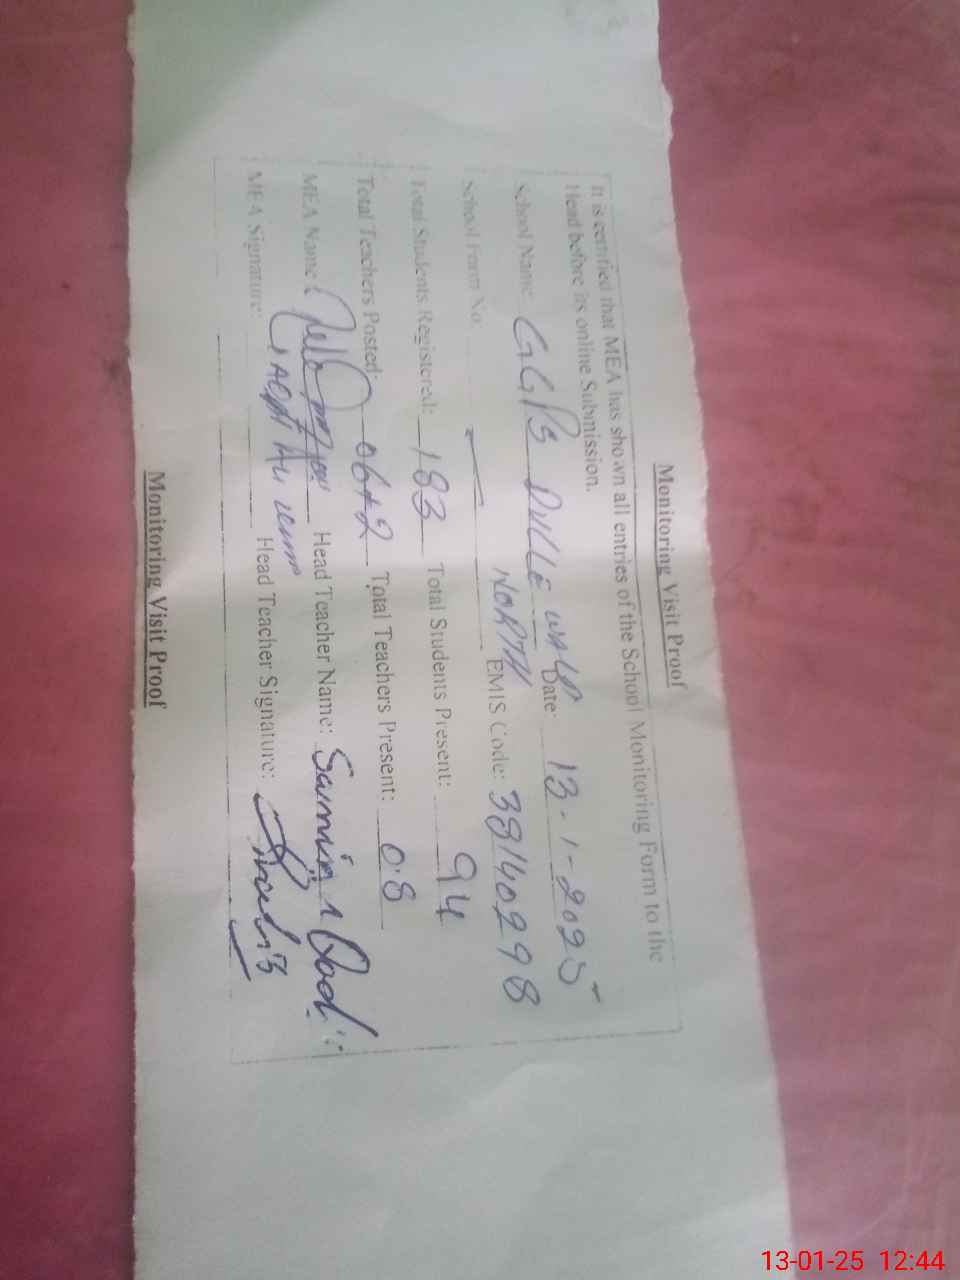 Monitoring Visit Proof
It is certified that MEA has shown all entries of the School Monitoring Form to the
Head before its online Submission.
School Name: GGPS DULLE WALA Date: 13-1-2025
NORTH
School Form No. EMIS Code: 38140298
Total Students Registered: 183 Total Students Present: 94
Total Teachers Posted: 06+2 Total Teachers Present: 08
MEA Name: Head Teacher Name: Samina
MEA Signature: Head Teacher Signature:
Monitoring Visit Proof
13-01-25 12:44